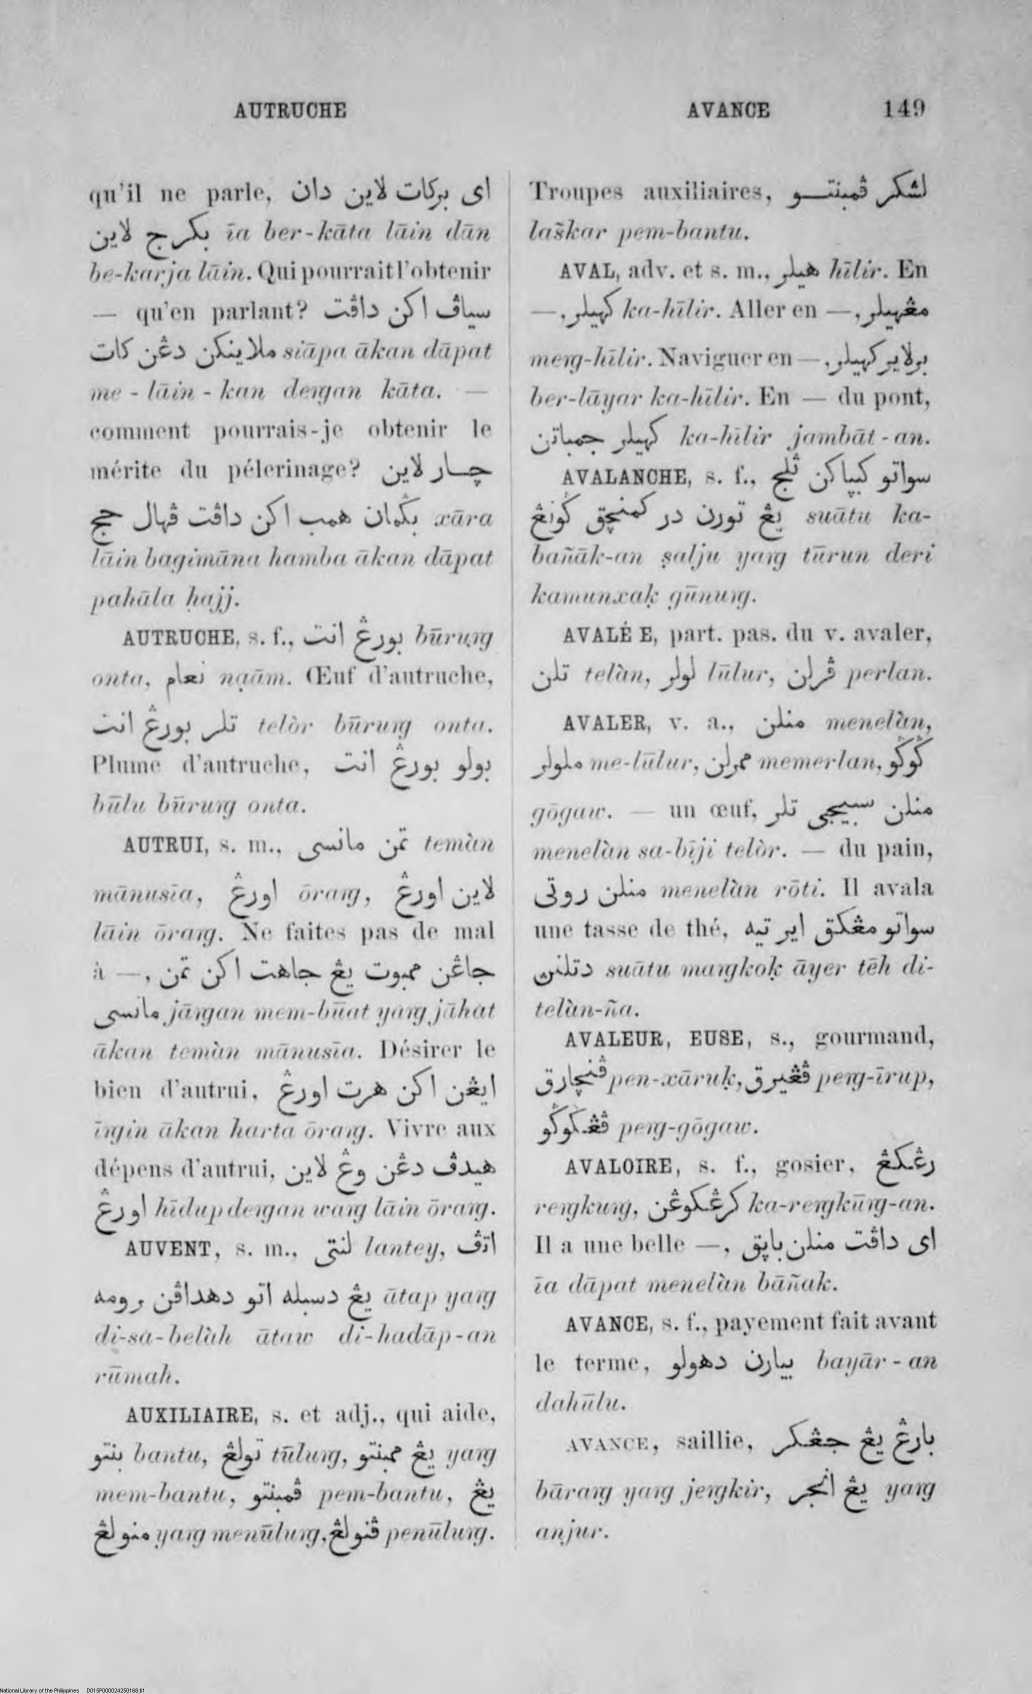 AUTRUCHE
AVANCE 149
qu'il ne parle, اى بركات لاين دان
بكرج لاين īa ber-kāta lāin dān
be-karja lāin. Qui pourrait l'obtenir
— qu'en parlant? سياڤ اكن داڤت
ملاينكن دڠن كات siāpa ākan dāpat
me-lāin-kan deṛgan kāta. —
comment pourrais-je obtenir le
mérite du pélerinage? چار لاين
بڬمان همب اكن داڤت ڤهال حج xāra
lāin bagimāna hamba ākan dāpat
pahāla ḥajj.
AUTRUCHE, s. f., بورڠ انت būruṛg
onta, نعام naạ̄m. Œuf d'autruche,
تلر بورڠ انت telòr būruṛg onta.
Plume d'autruche, بولو بورڠ انت
būlu būruṛg onta.
AUTRUI, s. m., تمن مانسى temàn
mānusīa, اورڠ ōraṛg, لاين اورڠ
lāin ōraṛg. Ne faites pas de mal
à —, جاڠن ممبوت يڠ جاهت اكن تمن
مانسى jāṛgan mem-būat yaṛg jāhat
ākan temàn mānusīa. Désirer le
bien d'autrui, ايڠن اكن هرت اورڠ
īṛgin ākan harta ōraṛg. Vivre aux
dépens d'autrui, هيدڤ دڠن وڠ لاين
اورڠ hīdup deṛgan waṛg lāin ōraṛg.
AUVENT, s. m., لنتى lantey, اتڤ
يڠ دسبله اتو دهداڤن رومه ātap yaṛg
di-sa-belàh ātaw di-hadāp-an
rūmah.
AUXILIAIRE, s. et adj., qui aide,
بنتو bantu, تولڠ tūluṛg, يڠ ممبنتو yaṛg
mem-bantu, ڤمبنتو pem-bantu, يڠ
منولڠ yaṛg menūluṛg, ڤنولڠ penūluṛg.
Troupes auxiliaires, لشكر ڤمبنتو
las̃kar pem-bantu.
AVAL, adv. et s. m., هيلر hīlir. En
—, كهيلر ka-hīlir. Aller en —, مڠهيلر
meṛg-hīlir. Naviguer en —, برلاير كهيلر
ber-lāyar ka-hīlir. En — du pont,
كهيلر جمباتن ka-hīlir jambāt-an.
AVALANCHE, s. f., سواتو كبڽاكن ثلج
يڠ تورن در كمنچق ڬونڠ suātu ka-
bañāk-an ṣalju yaṛg tūrun deri
kamunxaḳ gūnuṛg.
AVALÉ E, part. pas. du v. avaler,
تلن telàn, لولر lūlur, ڤرلن perlan.
AVALER, v. a., منلن menelàn,
ملولر me-lūlur, ممرلن memerlan, ڬوڬو
gōgaw. — un œuf, منلن سبيجى تلر
menelàn sa-bīji telòr. — du pain,
منلن روتى menelàn rōti. Il avala
une tasse de thé, سواتو مڠكق اير تيه
دتلنڽ suātu maṛgkoḳ āyer tēh di-
telàn-ña.
AVALEUR, EUSE, s., gourmand,
ڤنچارق pen-xāruḳ, ڤڠيرڤ peṛg-īrup,
ڤڠڬوڬو peṛg-gōgaw.
AVALOIRE, s. f., gosier, رڠكڠ
reṛgkuṛg, كرڠكوڠن ka-reṛgkūṛg-an.
Il a une belle —, اى داڤت منلن باڽق
īa dāpat menelàn bāñak.
AVANCE, s. f., payement fait avant
le terme, بيارن دهولو bayār-an
dahūlu.
AVANCE, saillie, بارڠ يڠ جڠكر
bāraṛg yaṛg jeṛgkir, يڠ انجر yaṛg
anjur.
National Library of the Philippines